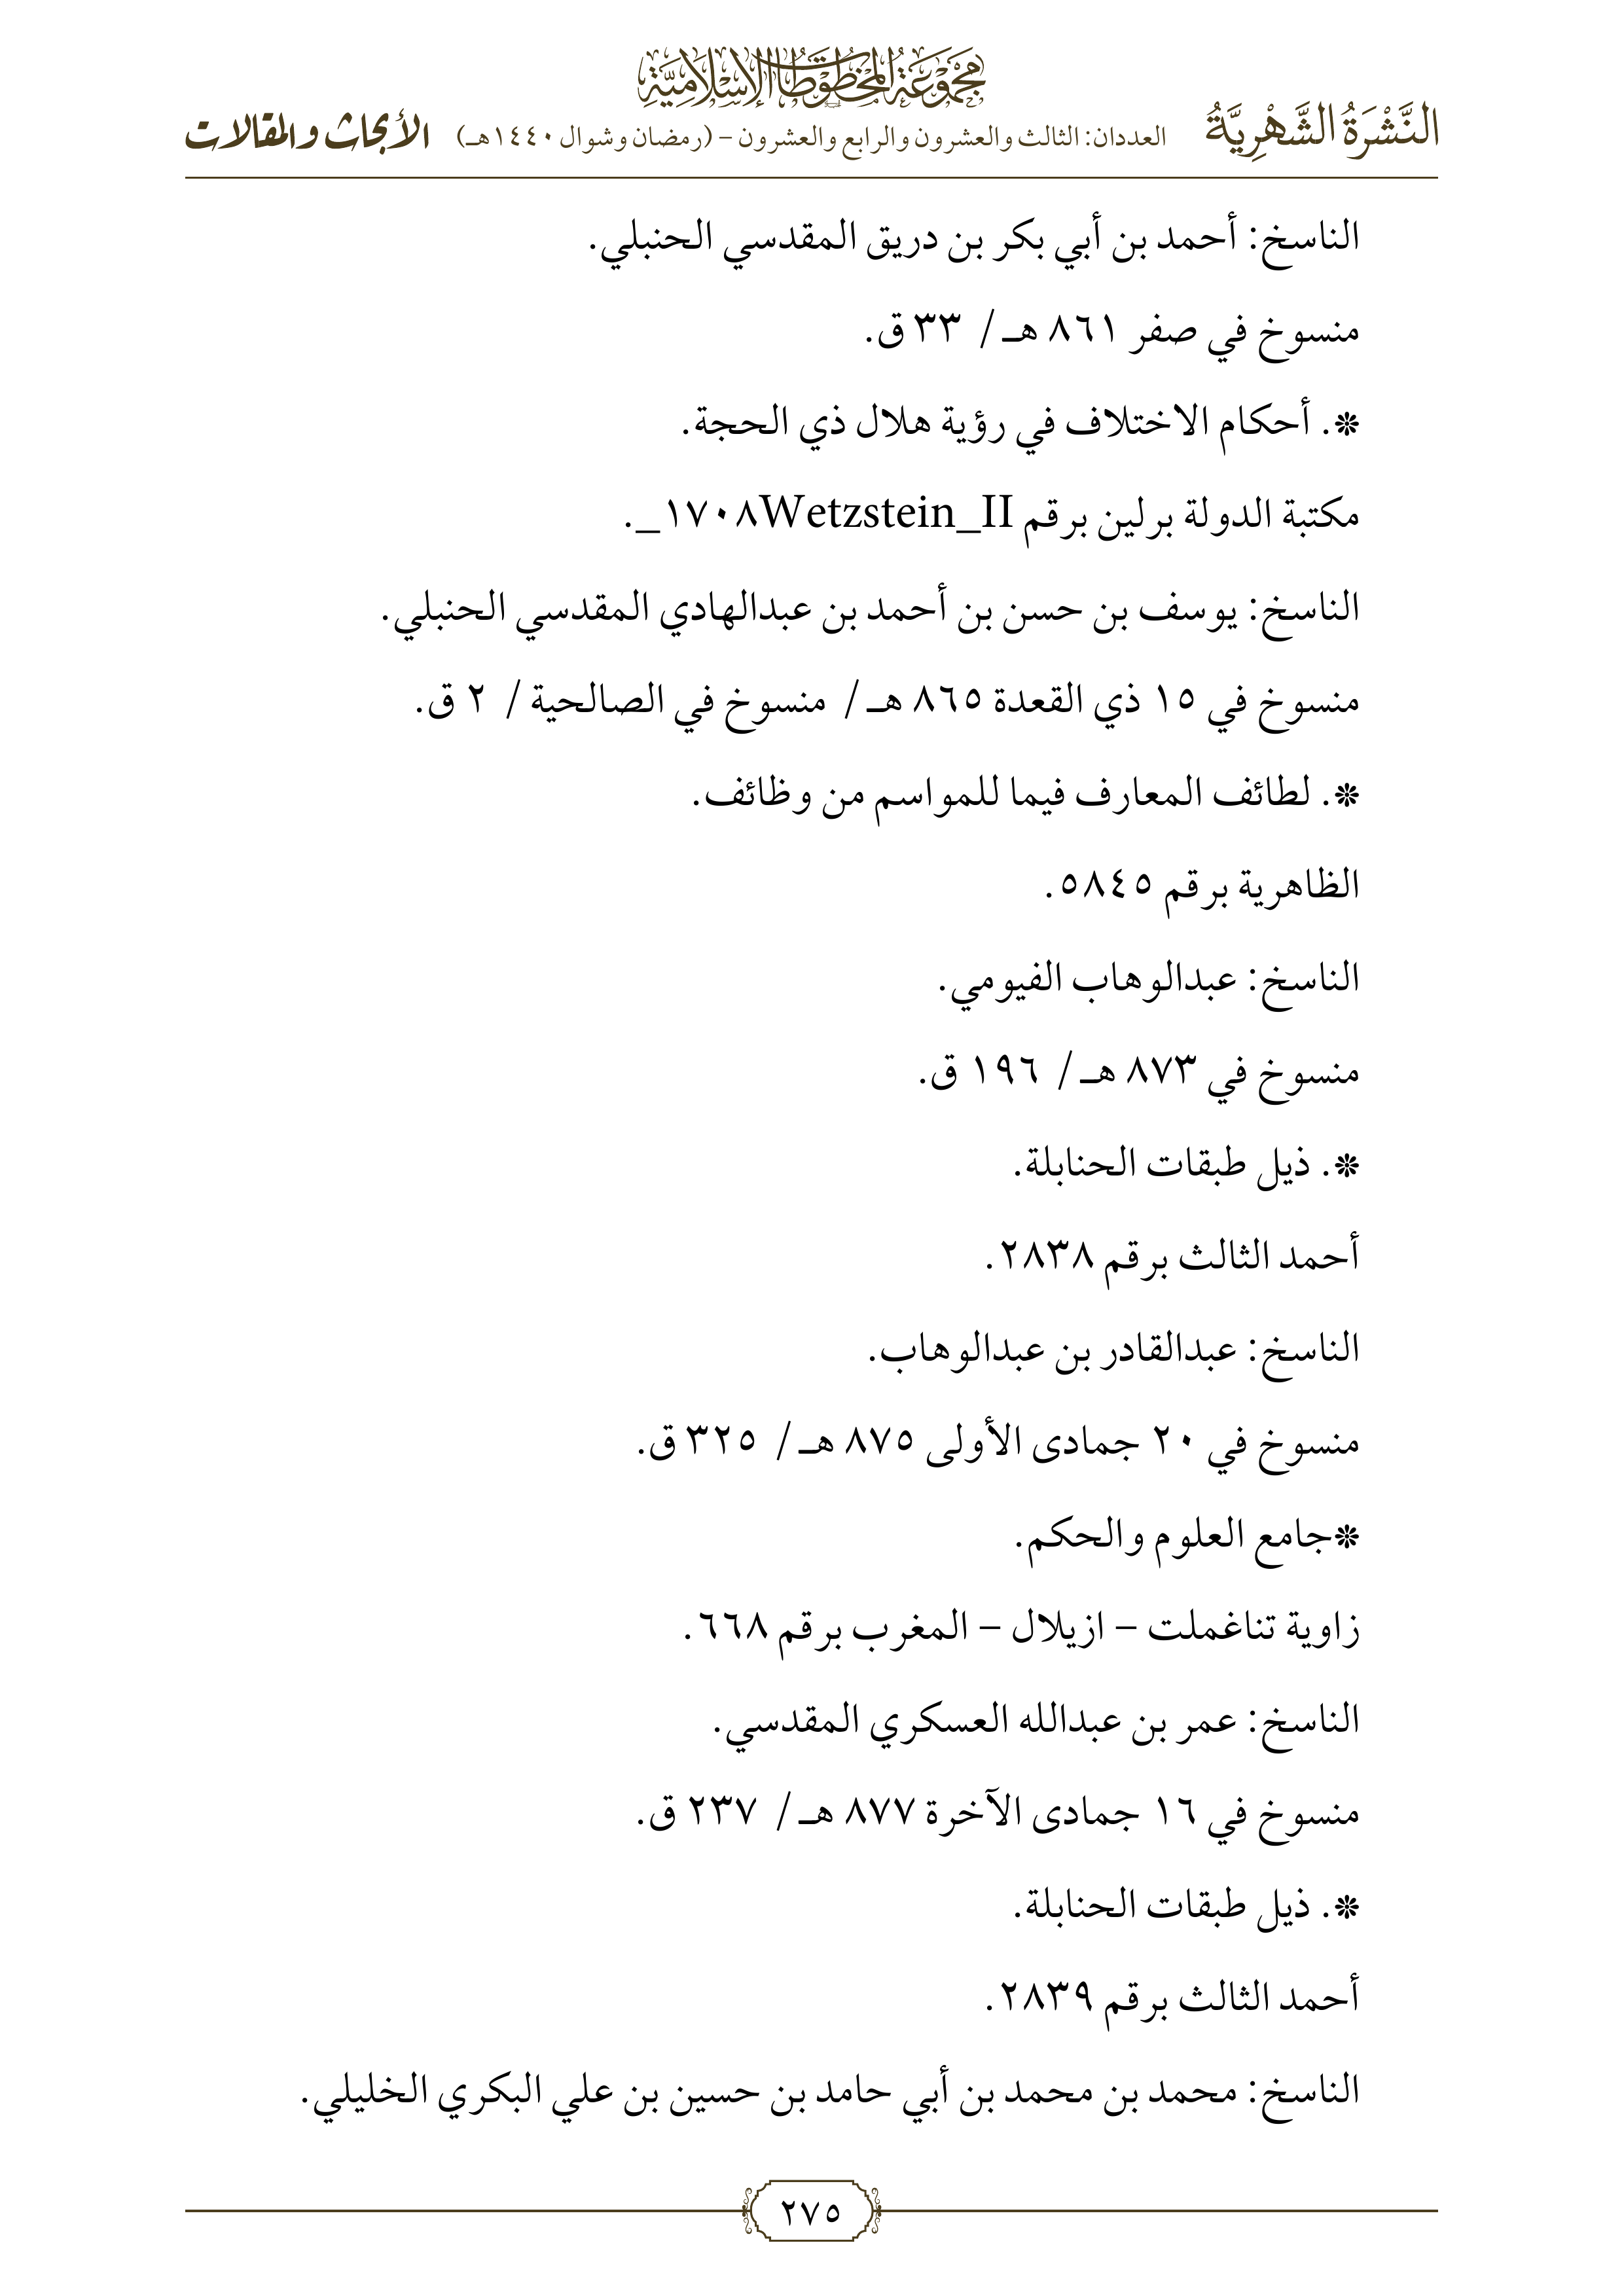 مجموعة المخطوطات الإسلامية
النَّشْرَةُ الشَّهْرِيَّةُ العددان: الثالث والعشرون والرابع والعشرون – (رمضان وشوال ١٤٤٠هـ) الأبحاث والمقالات
الناسخ: أحمد بن أبي بكر بن دريق المقدسي الحنبلي.
منسوخ في صفر ٨٦١ هـ / ٣٣ ق.
❇. أحكام الاختلاف في رؤية هلال ذي الحجة.
مكتبة الدولة برلين برقم Wetzstein_II١٧٠٨_.
الناسخ: يوسف بن حسن بن أحمد بن عبدالهادي المقدسي الحنبلي.
منسوخ في ١٥ ذي القعدة ٨٦٥ هـ / منسوخ في الصالحية / ٢ ق.
❇. لطائف المعارف فيما للمواسم من وظائف.
الظاهرية برقم ٥٨٤٥.
الناسخ: عبدالوهاب الفيومي.
منسوخ في ٨٧٣ هـ / ١٩٦ ق.
❇. ذيل طبقات الحنابلة.
أحمد الثالث برقم ٢٨٣٨.
الناسخ: عبدالقادر بن عبدالوهاب.
منسوخ في ٢٠ جمادى الأولى ٨٧٥ هـ / ٣٢٥ ق.
❇جامع العلوم والحكم.
زاوية تناغملت – ازيلال – المغرب برقم ٦٦٨.
الناسخ: عمر بن عبدالله العسكري المقدسي.
منسوخ في ١٦ جمادى الآخرة ٨٧٧ هـ / ٢٣٧ ق.
❇. ذيل طبقات الحنابلة.
أحمد الثالث برقم ٢٨٣٩.
الناسخ: محمد بن محمد بن أبي حامد بن حسين بن علي البكري الخليلي.
٢٧٥